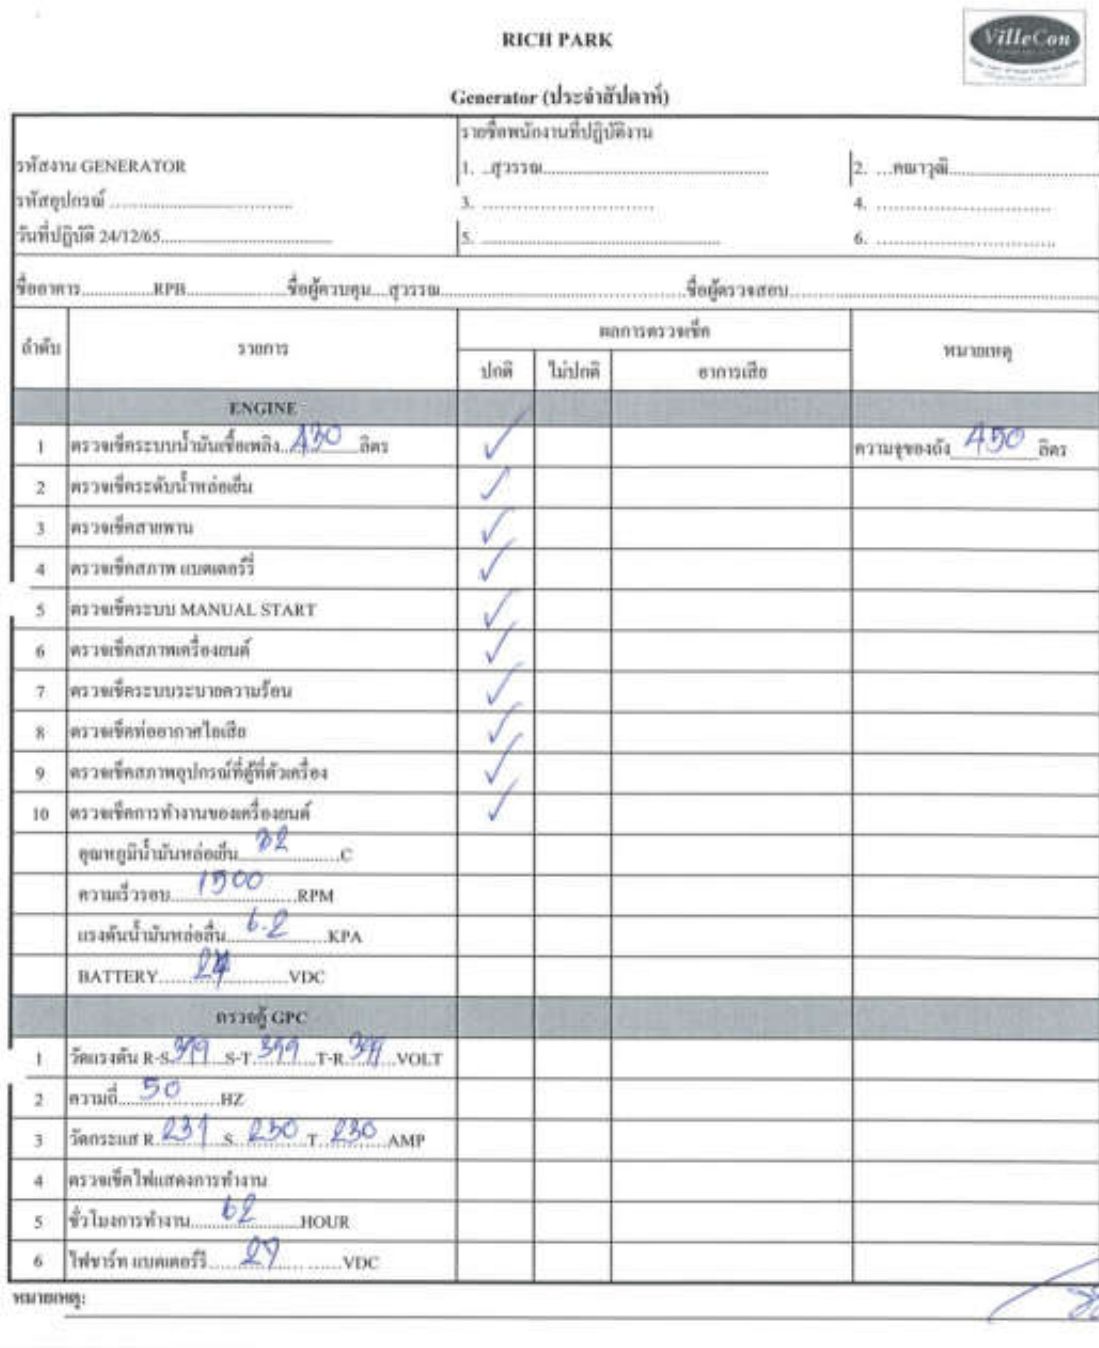 RICH PARK
VilleCon
Generator (ประจำสัปดาห์)
รายชื่อพนักงานที่ปฏิบัติงาน
รหัสงาน GENERATOR 1. ..สุวรรณ............ 2. ...คณาวุฒิ............
รหัสอุปกรณ์ ............ 3. ............ 4. ............
วันที่ปฏิบัติ 24/12/65............ 5. ............ 6. ............
ชื่ออาคาร............RPB............ชื่อผู้ควบคุม....สุวรรณ............ชื่อผู้ตรวจสอบ............
ลำดับ รายการ ผลการตรวจเช็ค หมายเหตุ
ปกติ ไม่ปกติ อาการเสีย
ENGINE
1 ตรวจเช็คระบบน้ำมันเชื้อเพลิง..430 ลิตร ✓ ความจุของถัง 450 ลิตร
2 ตรวจเช็คระดับน้ำหล่อเย็น ✓
3 ตรวจเช็คสายพาน ✓
4 ตรวจเช็คสภาพ แบตเตอร์รี่ ✓
5 ตรวจเช็คระบบ MANUAL START ✓
6 ตรวจเช็คสภาพเครื่องยนต์ ✓
7 ตรวจเช็คระบบระบายความร้อน ✓
8 ตรวจเช็คท่ออากาศไอเสีย ✓
9 ตรวจเช็คสภาพอุปกรณ์ที่ตู้ที่ตัวเครื่อง ✓
10 ตรวจเช็คการทำงานของเครื่องยนต์ ✓
อุณหภูมิน้ำมันหล่อเย็น............C
ความเร็วรอบ....1500....RPM
แรงดันน้ำมันหล่อลื่น....6.2....KPA
BATTERY....24....VDC
ตรวจตู้ GPC
1 วัดแรงดัน R-S.399 S-T.399 T-R.399 VOLT
2 ความถี่....50....HZ
3 วัดกระแส R.231 S.230 T.230 AMP
4 ตรวจเช็คไฟแสดงการทำงาน
5 ชั่วโมงการทำงาน....62....HOUR
6 ไฟชาร์ท แบตเตอร์รี่....27....VDC
หมายเหตุ: